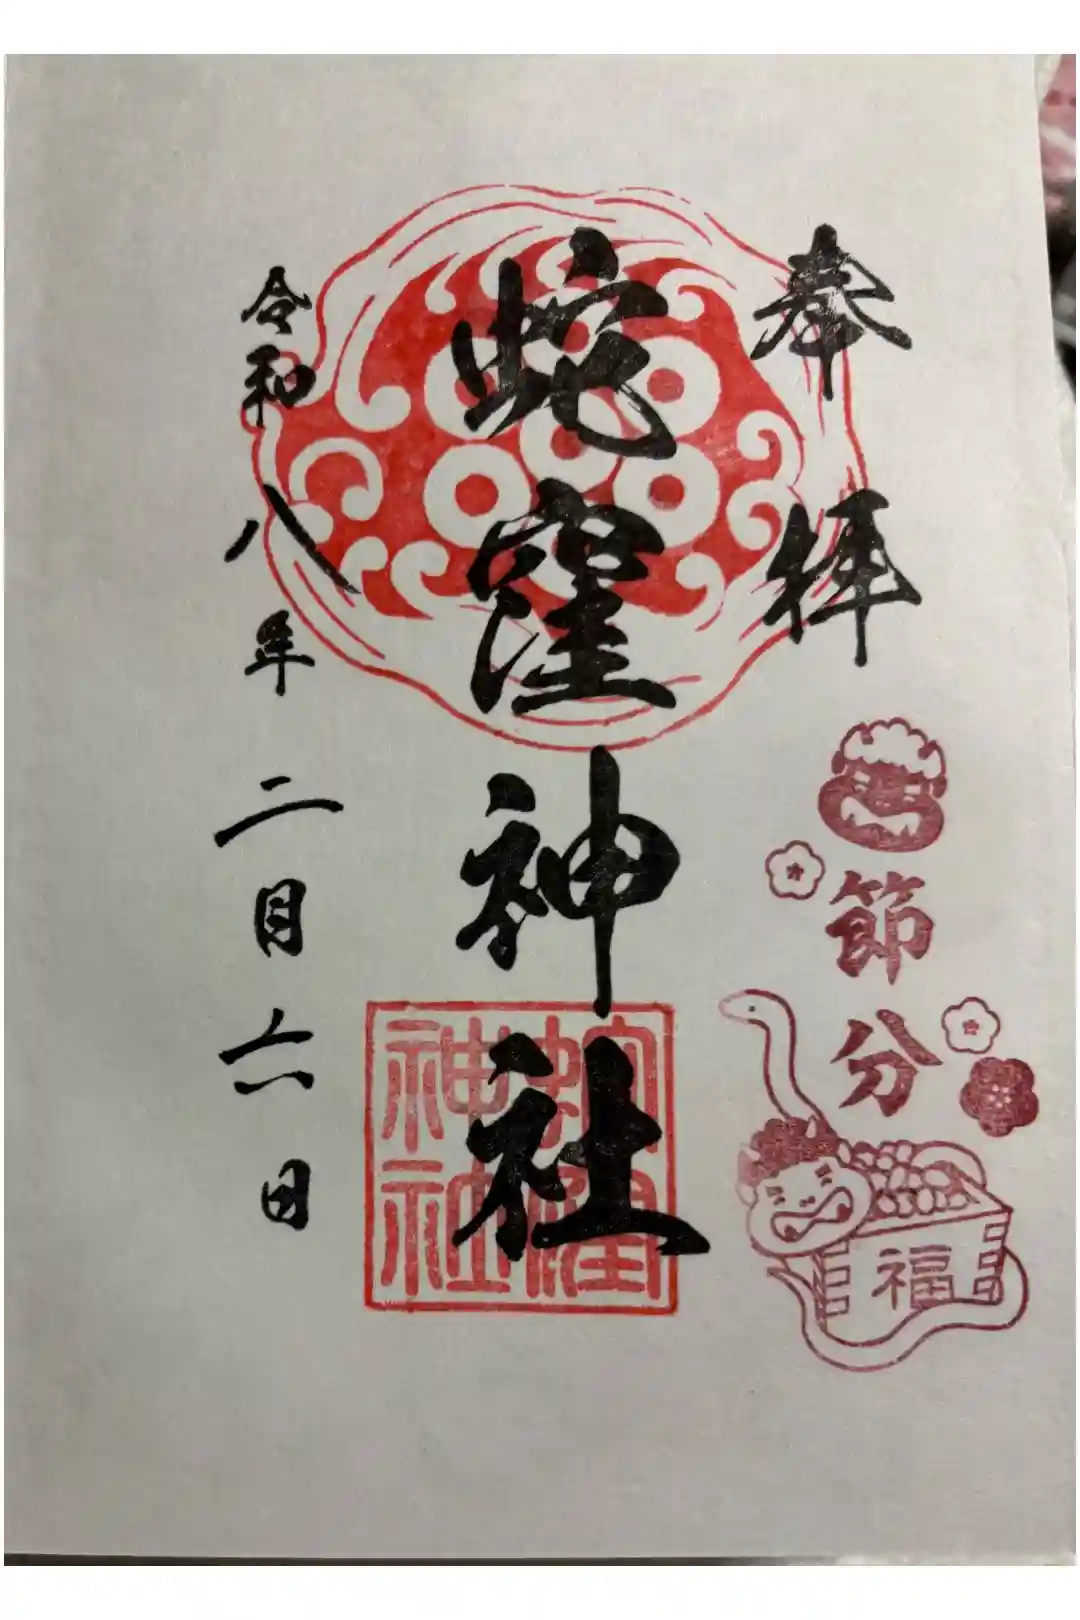 奉拝
節分
福
蛇窪神社
蛇窪
神社
令和八年二月六日